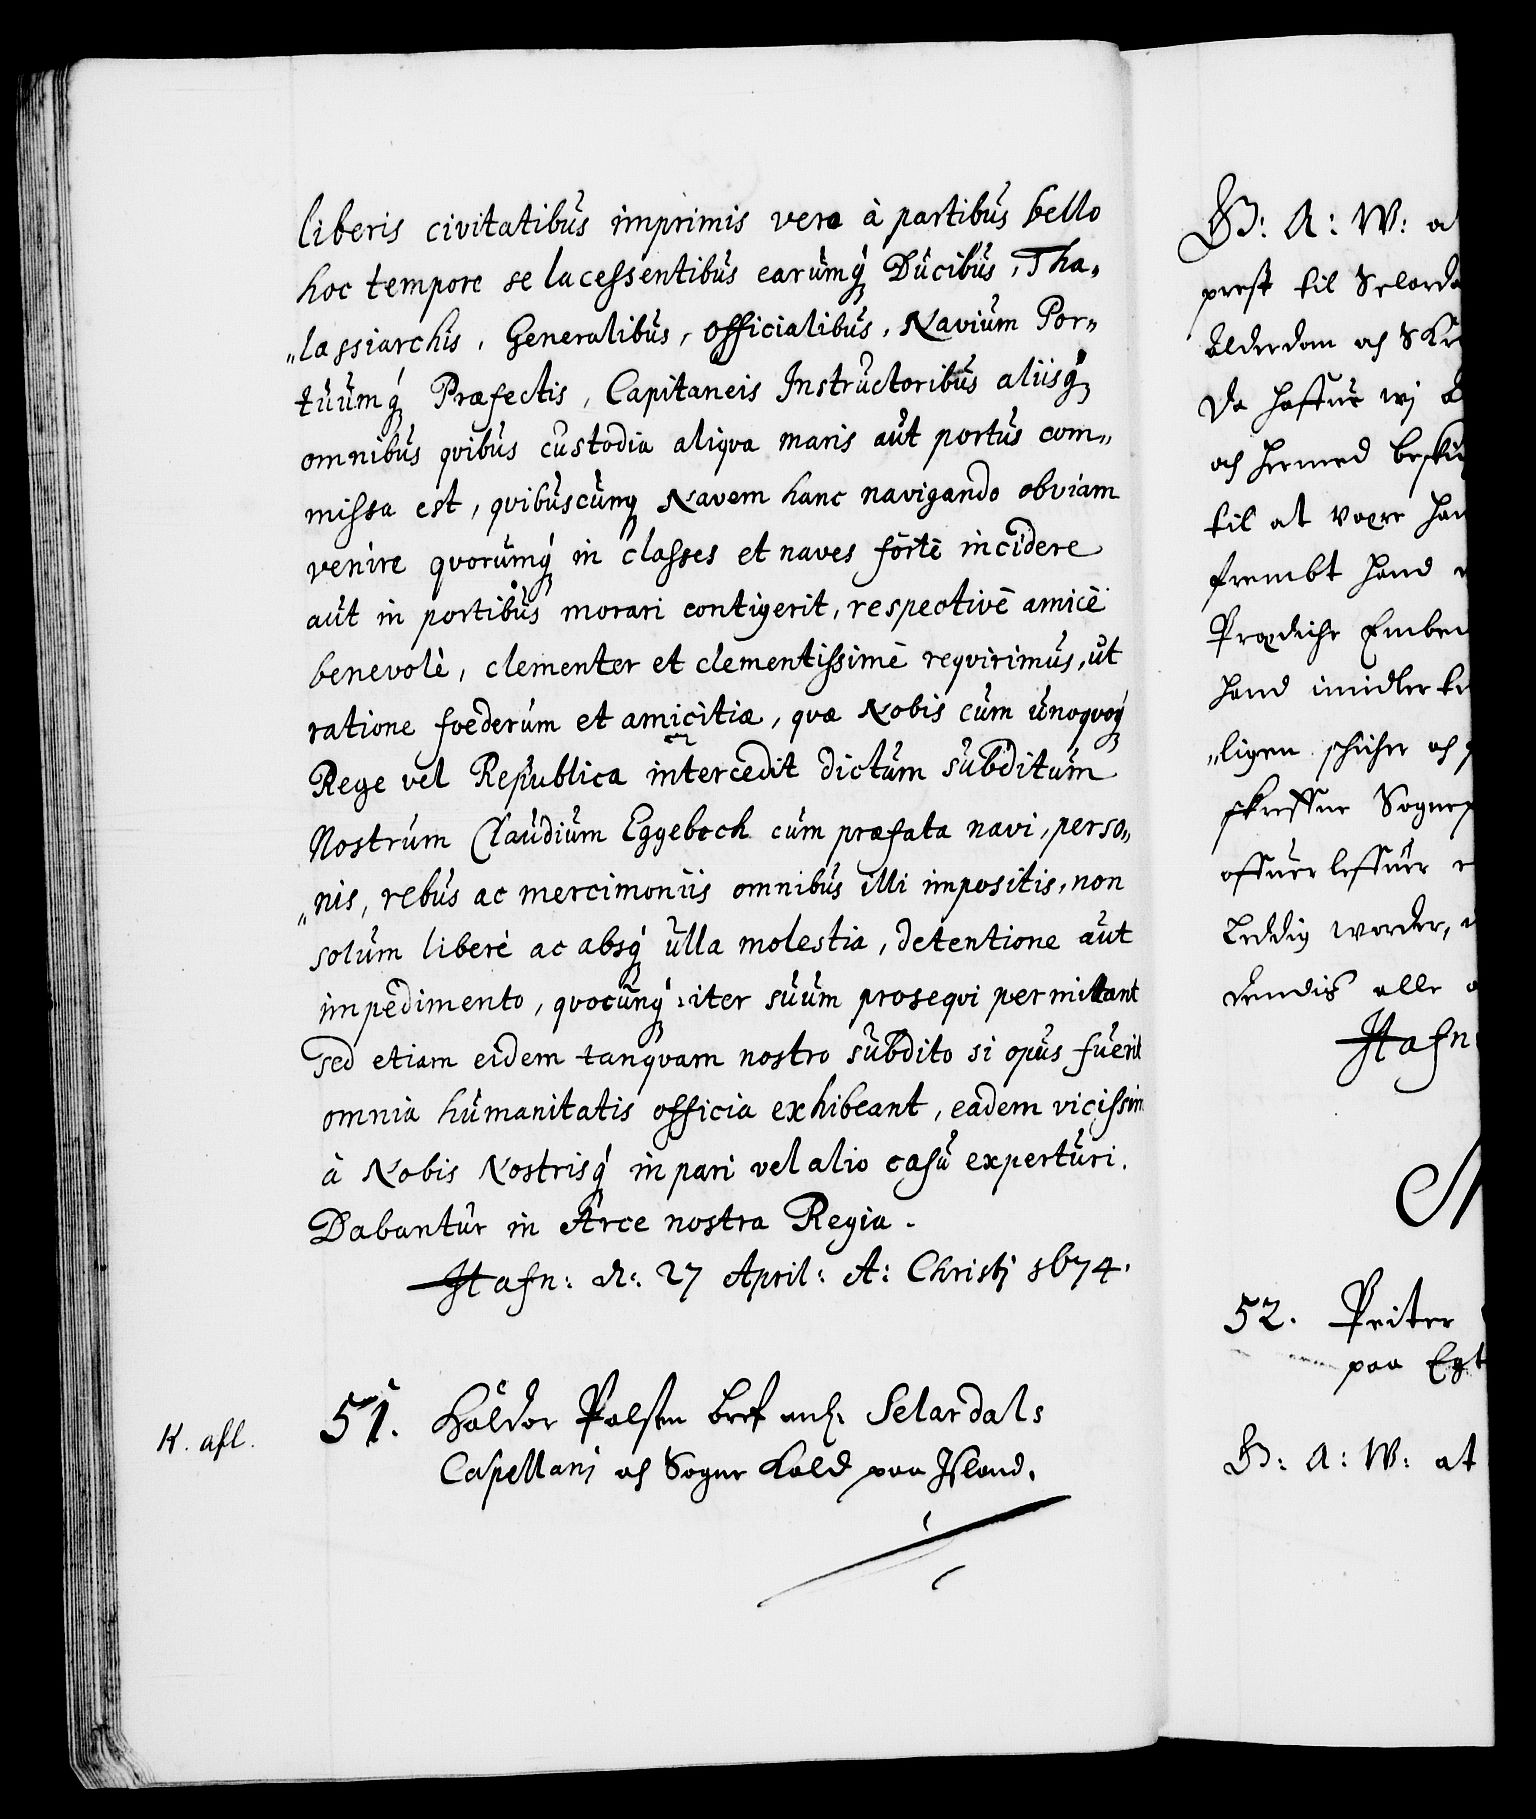 liberis civitatibus imprimis vero à partibus bello
hoc tempore se lacessentibus earumq́ Ducibus, Tha„
„lassiarchis, Generalibus, Officialibus, Navium Por„
tuumq́ Præfectis, Capitaneis Instructoribus aliisq́
omnibus qvibus custodia aliqva maris aut portus com„
missa est, qvibuscunq Navem hanc navigando obviam
venire qvorumq́ in classes et naves fortè incidere
aut in portibus morari contigerit, respectivè amicè
benevolè, clementer et clementissimè reqvirimus, ut
ratione foederum et amicitiæ, qvæ Nobis cum unoqvoq́
Rege vel Republica intercedit dictum subditum
Nostrum Claudium Eggebech cum præfata navi, perso„
„nis, rebus ac mercimoniis omnibus illi impositis, non
solum liberè ac absq́ ulla molestia, detentione aut
impedimento, qvocunq́ iter suum proseqvi permittant
sed etiam eidem tanqvam nostro subdito si opus fuerit
omnia humanitatis officia exhibeant, eadem vicissim
à Nobis Nostrisq́ in pari vel alio casu experturi.
Dabantur in Arce nostra Regia.
Hafn: d: 27 April: A: Christi 1674.
K. afl.
51. Haldor Palsen bref anl: Selardals
Capellani och Sogne Kald paa Island.
G: A: W: at
prest til Selarda
Alderdom och Skrø
Da haffue wj
och hermed beski
til at være han
frembt hand
Prædiche Embe
hand imidlerti
„ligen schicher och
skreffne Sognep
offuerleffuer
Leddig worder,
Hafn:
52. Peiter
paa Egt
G: A: W: at